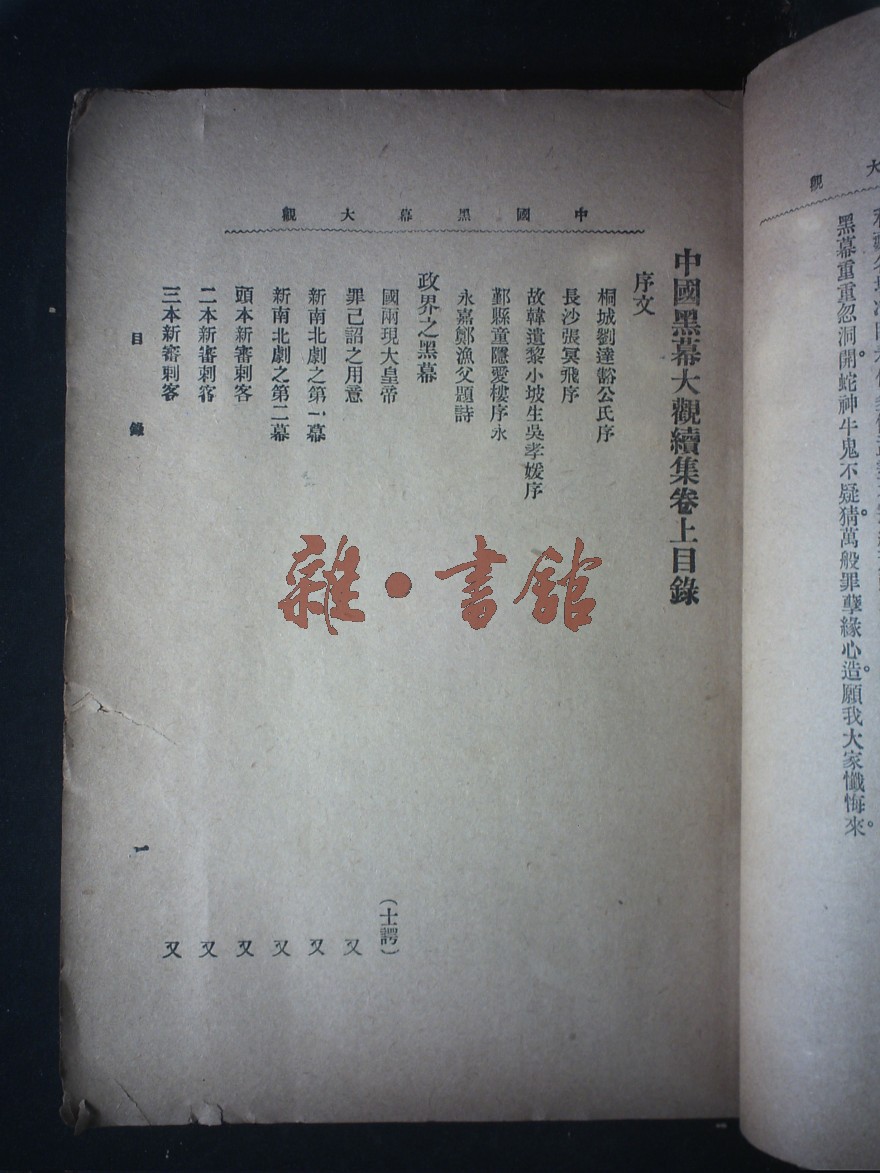 中國黑幕大觀
中國黑幕大觀續集卷上目錄
序文
桐城劉達齡公氏序
長沙張冥飛序
故韓遺黎小坡生吳孝媛序
鄞縣童隱愛樓序永
永嘉鄭漁父題詩
政界之黑幕
國兩現大皇帝 (士諤)
罪己詔之用意 又
新南北劇之第一幕 又
新南北劇之第二幕 又
頭本新審刺客 又
二本新審刺客 又
三本新審刺客 又
目錄 一
大觀
黑幕重重忽洞開。蛇神牛鬼不疑猜。萬般罪孽緣心造。願我大家懺悔來。
雜·書館